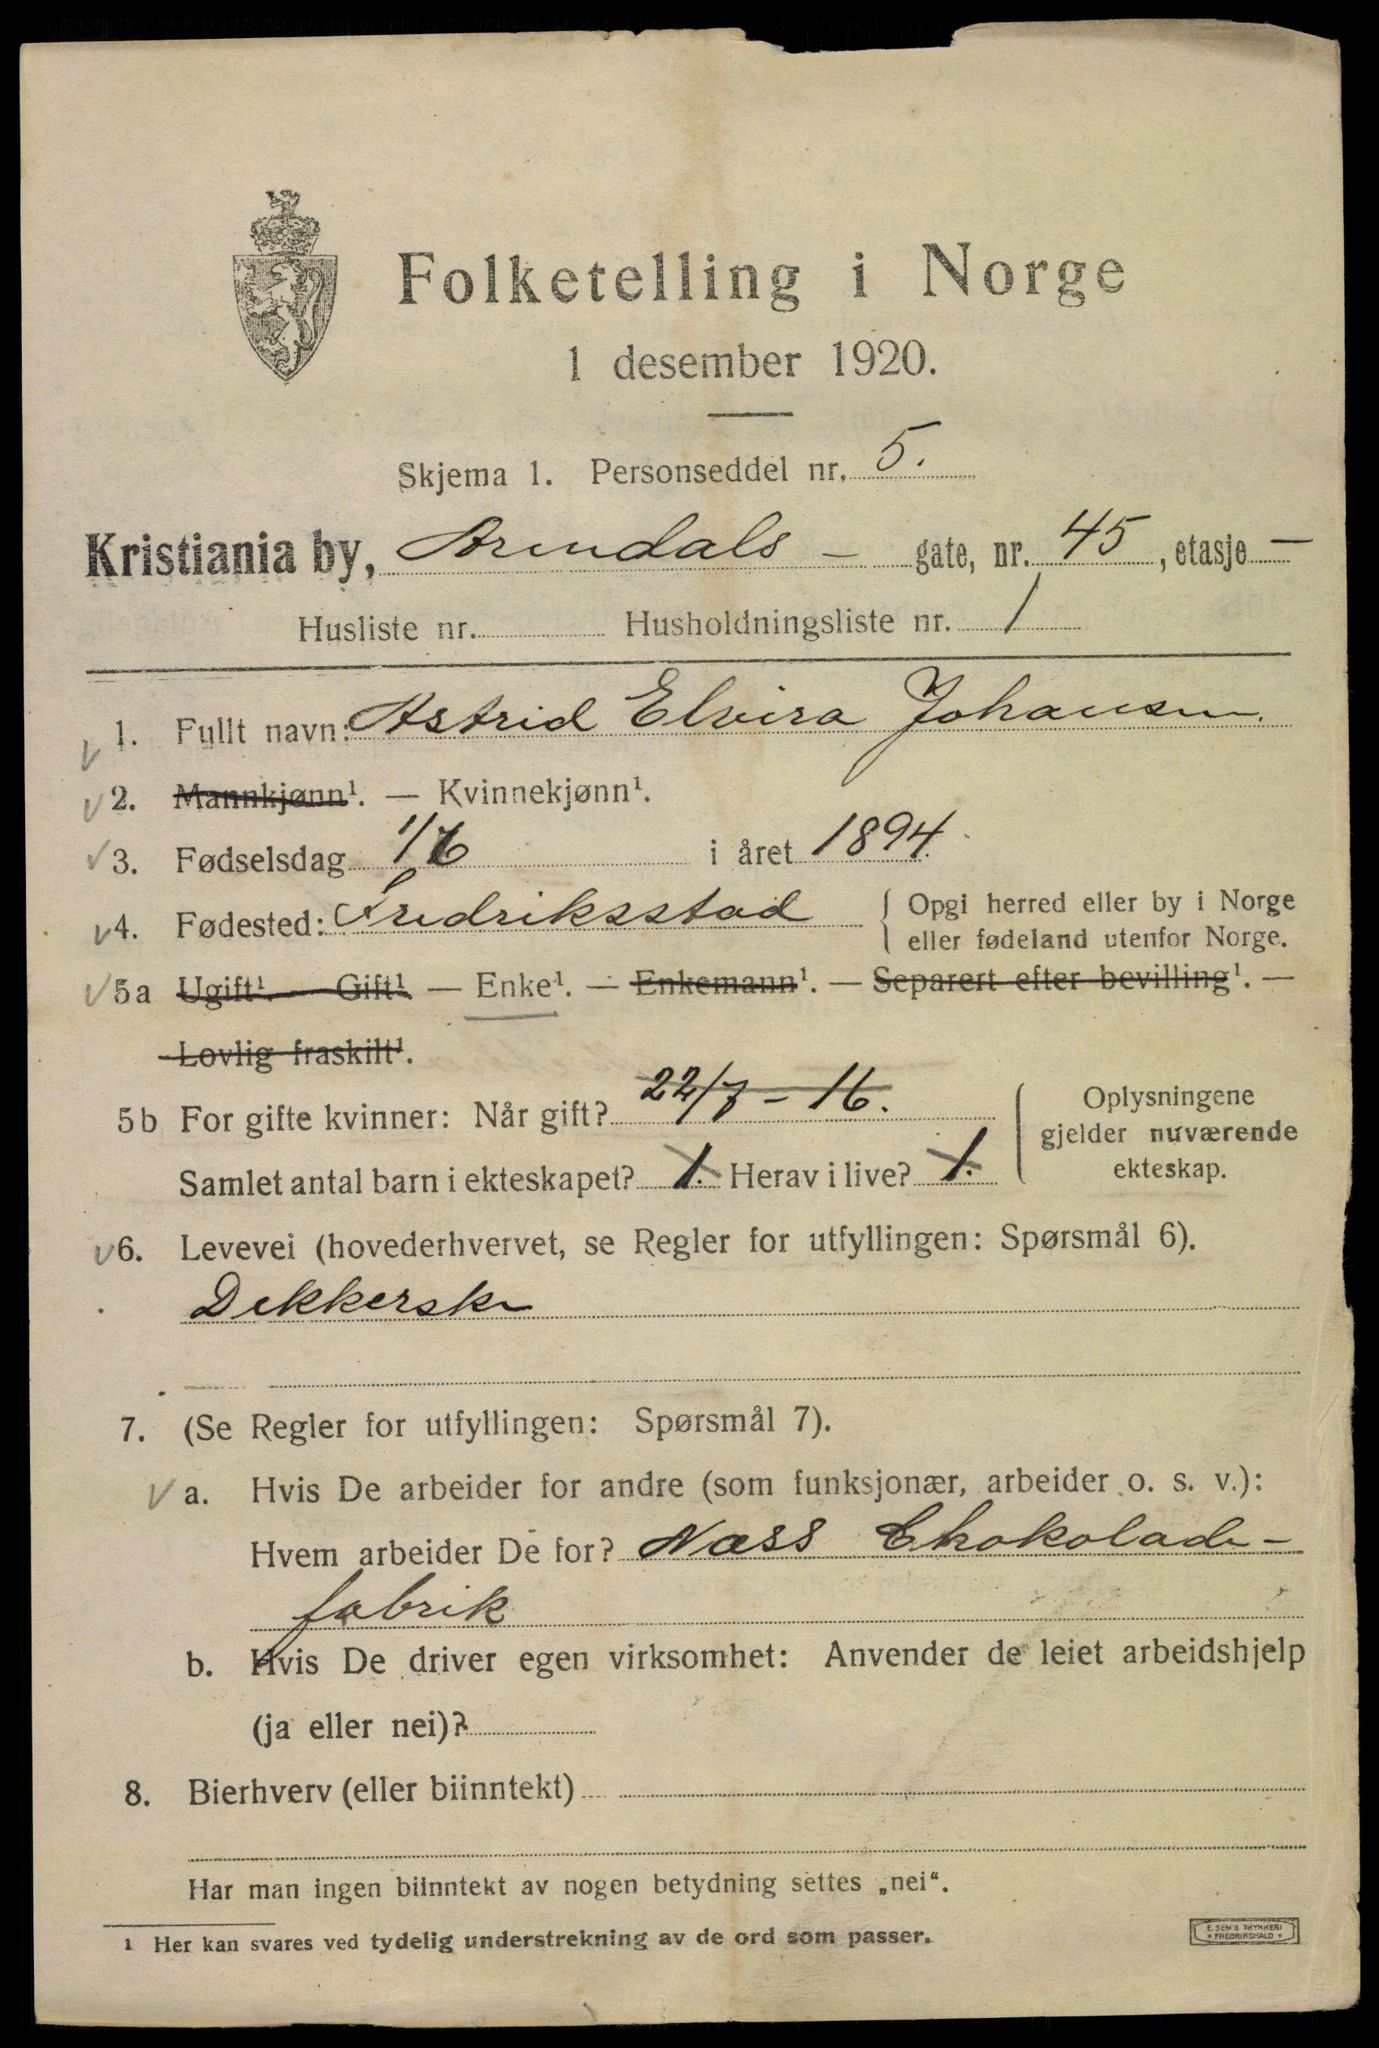 Folketelling i Norge
1 desember 1920.
Skjema 1. Personseddel nr. 5.
Kristiania by, Arendals - gate, nr. 45, etasje -
Husliste nr. Husholdningsliste nr. 1
1. Fullt navn: Astrid Elvira Johansen.
2. Mannkjønn¹. — Kvinnekjønn¹.
3. Fødselsdag 1/6 i året 1894.
4. Fødested: Fredriksstad { Opgi herred eller by i Norge
eller fødeland utenfor Norge.
5a Ugift¹. — Gift¹ — Enke¹. — Enkemann¹. — Separert efter bevilling¹. —
Lovlig fraskilt¹.
5b For gifte kvinner: Når gift? 22/7 - 16.
Samlet antal barn i ekteskapet? 1. Herav i live? 1.
{ Oplysningene
gjelder nuværende
ekteskap.
6. Levevei (hovederhvervet, se Regler for utfyllingen: Spørsmål 6).
Dekkerske
7. (Se Regler for utfyllingen: Spørsmål 7).
a. Hvis De arbeider for andre (som funksjonær, arbeider o. s. v.):
Hvem arbeider De for? Næss Chokolade-
fabrik
b. Hvis De driver egen virksomhet: Anvender de leiet arbeidshjelp
(ja eller nei)?
8. Bierhverv (eller biinntekt)
Har man ingen biinntekt av nogen betydning settes „nei“.
¹ Her kan svares ved tydelig understrekning av de ord som passer.
E. SEM'S TRYKKERI
• FREDRIKSHALD •